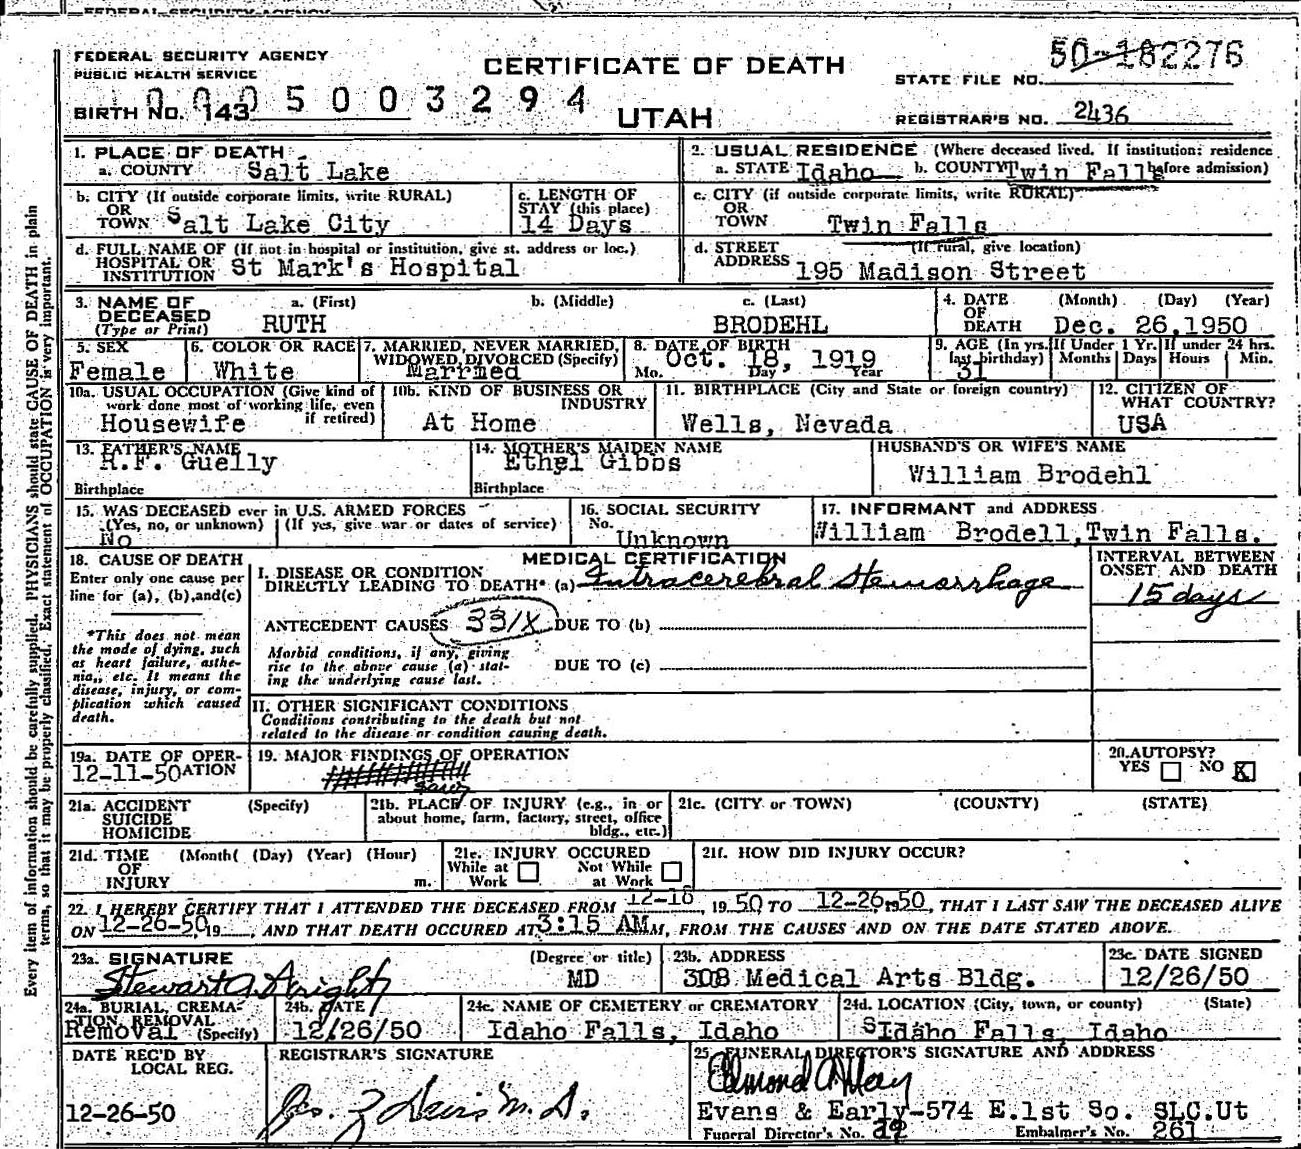 FEDERAL SECURITY AGENCY
FEDERAL SECURITY AGENCY
PUBLIC HEALTH SERVICE
CERTIFICATE OF DEATH
UTAH
STATE FILE NO. 50-182276
BIRTH NO. 143
0005003294
REGISTRAR'S NO. 2436
1. PLACE OF DEATH
a. COUNTY Salt Lake
2. USUAL RESIDENCE (Where deceased lived. If institution: residence before admission)
a. STATE Idaho b. COUNTY Twin Falls
b. CITY (If outside corporate limits, write RURAL)
OR
TOWN Salt Lake City
c. LENGTH OF
STAY (this place)
14 Days
c. CITY (if outside corporate limits, write RURAL)
OR
TOWN Twin Falls
d. FULL NAME OF (If not in hospital or institution, give st. address or loc.)
HOSPITAL OR
INSTITUTION St Mark's Hospital
d. STREET (If rural, give location)
ADDRESS 195 Madison Street
3. NAME OF
DECEASED
(Type or Print)
a. (First) b. (Middle) c. (Last)
RUTH BRODEHL
4. DATE (Month) (Day) (Year)
OF
DEATH Dec. 26,1950
5. SEX
Female
6. COLOR OR RACE
White
7. MARRIED, NEVER MARRIED,
WIDOWED, DIVORCED (Specify)
Married
8. DATE OF BIRTH
Oct. 18, 1919
Mo. Day Year
9. AGE (In yrs. last birthday) If Under 1 Yr. If under 24 hrs.
31 Months Days Hours Min.
10a. USUAL OCCUPATION (Give kind of
work done most of working life, even
if retired)
Housewife
10b. KIND OF BUSINESS OR
INDUSTRY
At Home
11. BIRTHPLACE (City and State or foreign country)
Wells, Nevada
12. CITIZEN OF
WHAT COUNTRY?
USA
13. FATHER'S NAME
H.F. Guelly
Birthplace
14. MOTHER'S MAIDEN NAME
Ethel Gibbs
Birthplace
HUSBAND'S OR WIFE'S NAME
William Brodehl
15. WAS DECEASED ever in U.S. ARMED FORCES
(Yes, no, or unknown) (If yes, give war or dates of service)
No
16. SOCIAL SECURITY
No. Unknown
17. INFORMANT and ADDRESS
William Brodell,Twin Falls.
18. CAUSE OF DEATH
Enter only one cause per
line for (a), (b), and(c)
*This does not mean
the mode of dying, such
as heart failure, asthe-
nia, etc. It means the
disease, injury, or com-
plication which caused
death.
MEDICAL CERTIFICATION
I. DISEASE OR CONDITION
DIRECTLY LEADING TO DEATH* (a) Intracerebral Hemorrhage
ANTECEDENT CAUSES 331X DUE TO (b)
Morbid conditions, if any, giving
rise to the above cause (a) stat-
ing the underlying cause last.
DUE TO (c)
II. OTHER SIGNIFICANT CONDITIONS
Conditions contributing to the death but not
related to the disease or condition causing death.
INTERVAL BETWEEN
ONSET AND DEATH
15 days
19a. DATE OF OPER-
ATION
12-11-50
19. MAJOR FINDINGS OF OPERATION
20. AUTOPSY?
YES NO X
21a. ACCIDENT (Specify)
SUICIDE
HOMICIDE
21b. PLACE OF INJURY (e.g., in or
about home, farm, factory, street, office
bldg., etc.)
21c. (CITY or TOWN) (COUNTY) (STATE)
21d. TIME (Month( (Day) (Year) (Hour)
OF
INJURY m.
21e. INJURY OCCURED
While at Not While
Work at Work
21f. HOW DID INJURY OCCUR?
22. I HEREBY CERTIFY THAT I ATTENDED THE DECEASED FROM 12-16, 1950, TO 12-26, 1950, THAT I LAST SAW THE DECEASED ALIVE
ON 12-26-50, 19 , AND THAT DEATH OCCURED AT 3:15 AM M, FROM THE CAUSES AND ON THE DATE STATED ABOVE.
23a. SIGNATURE (Degree or title)
Stewart A Wright MD
23b. ADDRESS
308 Medical Arts Bldg.
23c. DATE SIGNED
12/26/50
24a. BURIAL, CREMA-
TION, REMOVAL
Removal (Specify)
24b. DATE
12/26/50
24c. NAME OF CEMETERY or CREMATORY
Idaho Falls, Idaho
24d. LOCATION (City, town, or county) (State)
Idaho Falls, Idaho
DATE REC'D BY
LOCAL REG.
12-26-50
REGISTRAR'S SIGNATURE
M.D.
25. FUNERAL DIRECTOR'S SIGNATURE AND ADDRESS
Evans & Early-574 E.1st So. SLC.Ut
Funeral Director's No. Embalmer's No. 261
Every item of information should be carefully supplied. PHYSICIANS should state CAUSE OF DEATH in plain
terms, so that it may be properly classified. Exact statement of OCCUPATION is very important.